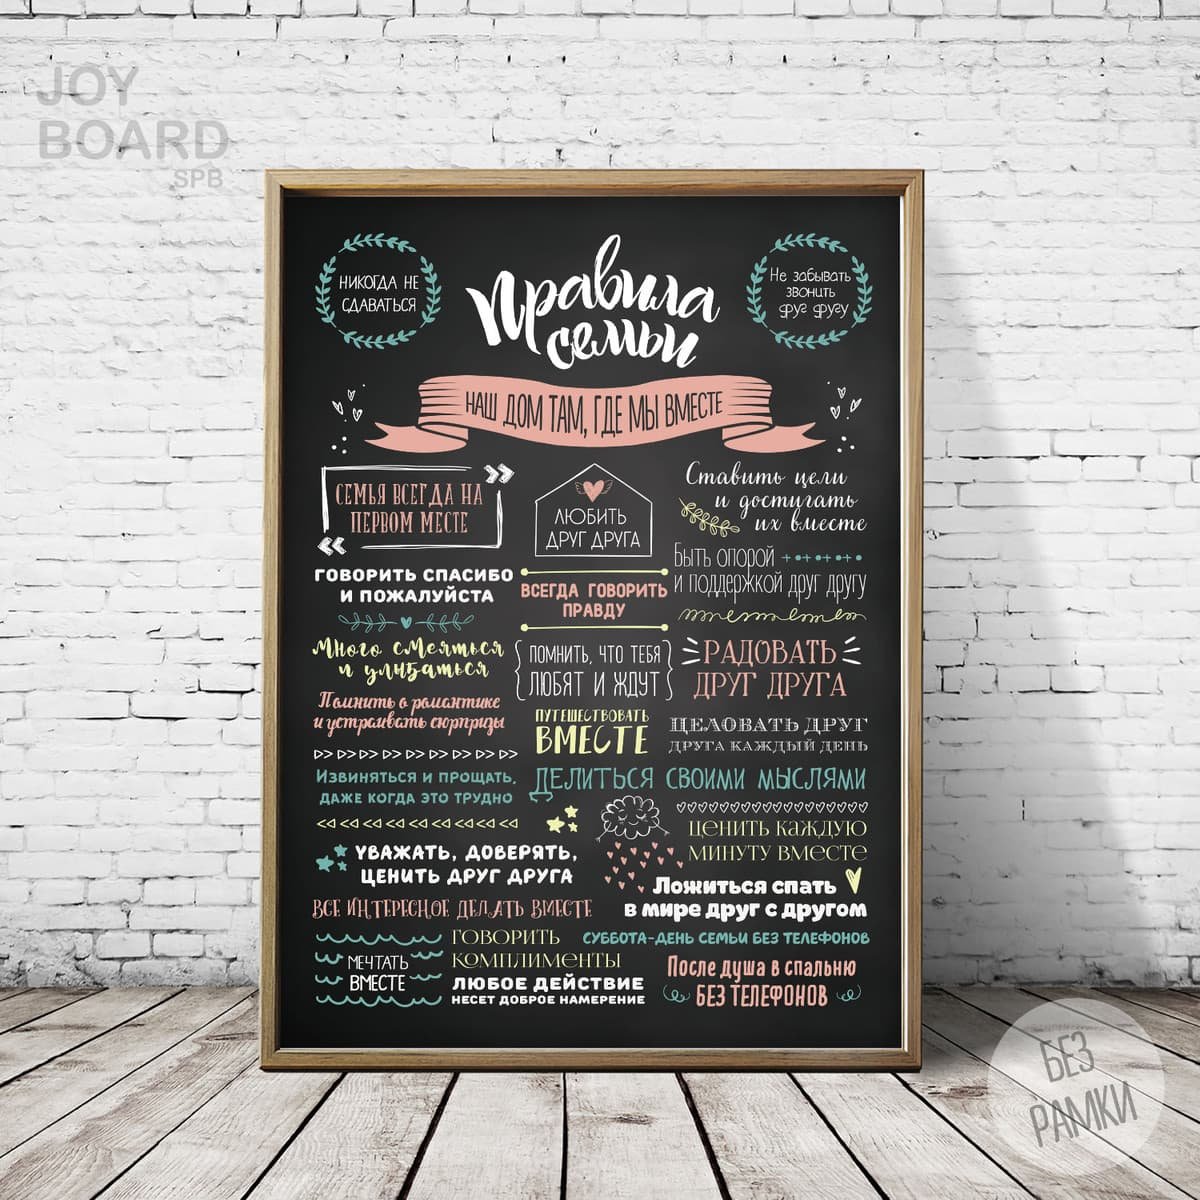 JOY
BOARD
SPB
НИКОГДА НЕ
СДАВАТЬСЯ
Правила
семьи
Не забывать
звонить
друг другу
НАШ ДОМ ТАМ, ГДЕ МЫ ВМЕСТЕ
СЕМЬЯ ВСЕГДА НА
ПЕРВОМ МЕСТЕ
ЛЮБИТЬ
ДРУГ ДРУГА
Ставить цели
и достигать
их вместе
ГОВОРИТЬ СПАСИБО
И ПОЖАЛУЙСТА
ВСЕГДА ГОВОРИТЬ
ПРАВДУ
Быть опорой
и поддержкой друг другу
Много смеяться
и улыбаться
ПОМНИТЬ, ЧТО ТЕБЯ
ЛЮБЯТ И ЖДУТ
РАДОВАТЬ
ДРУГ ДРУГА
Помнить о романтике
и устраивать сюрпризы
ПУТЕШЕСТВОВАТЬ
ВМЕСТЕ
ЦЕЛОВАТЬ ДРУГ
ДРУГА КАЖДЫЙ ДЕНЬ
Извиняться и прощать,
ДАЖЕ КОГДА ЭТО ТРУДНО
ДЕЛИТЬСЯ СВОИМИ МЫСЛЯМИ
УВАЖАТЬ, ДОВЕРЯТЬ,
ЦЕНИТЬ ДРУГ ДРУГА
ЦЕНИТЬ КАЖДУЮ
МИНУТУ ВМЕСТЕ
Ложиться спать
в мире друг с другом
ВСЕ ИНТЕРЕСНОЕ ДЕЛАТЬ ВМЕСТЕ
МЕЧТАТЬ
ВМЕСТЕ
ГОВОРИТЬ
КОМПЛИМЕНТЫ
СУББОТА-ДЕНЬ СЕМЬИ БЕЗ ТЕЛЕФОНОВ
ЛЮБОЕ ДЕЙСТВИЕ
НЕСЕТ ДОБРОЕ НАМЕРЕНИЕ
После душа в спальню
БЕЗ ТЕЛЕФОНОВ
БЕЗ
РАМКИ